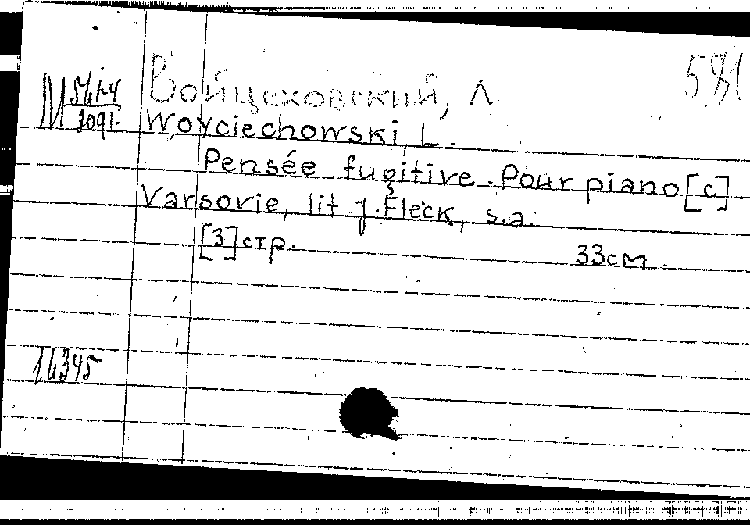 Войцеховский, Л
Woyciechowski, L.
Pensée fugitive. Pour piano [c]
Varsovie, lit J. Fleck, s.a.
[3] стр. 33см
16345